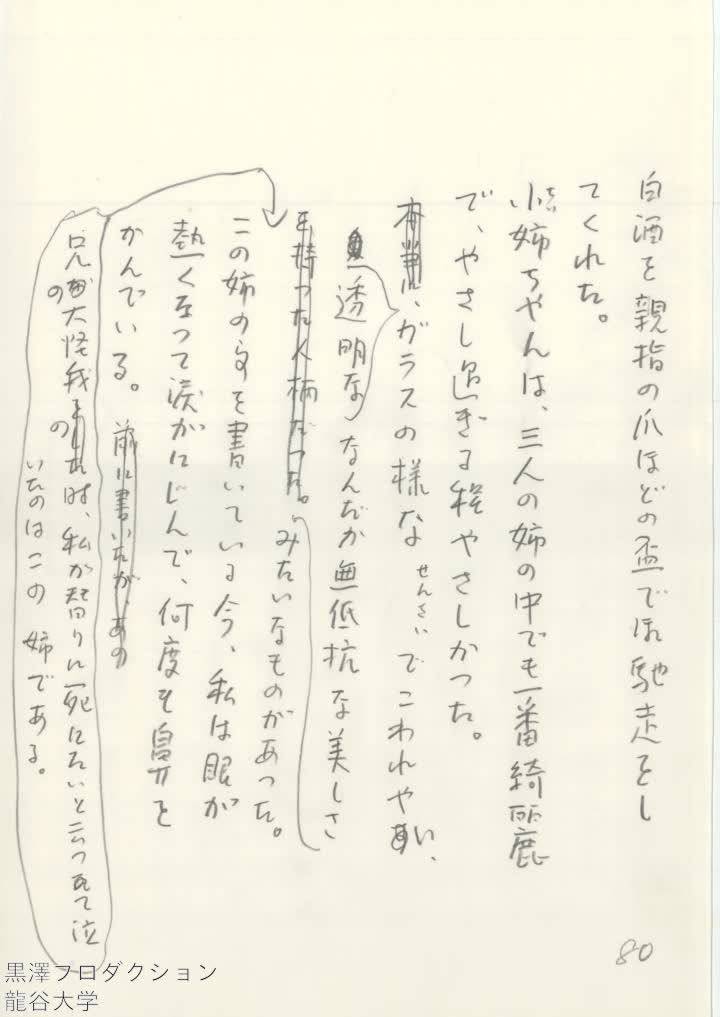 白酒を親指の爪ほどの盃で御馳走をし
てくれた。
小姉ちやんは、三人の姉の中でも一番綺麗
で、やさし過ぎる程やさしかつた。
本当に、ガラスの様な せんさいでこわれや
い、
透明な なんだか無低抗な美しさ
を持つた人柄だつた。みたいなものがあつた。
この姉の事を書いている今、私は眼が
熱くなつて涙がにじんで、何度も鼻を
かんでいる。前に書いたが、あの
兄の大怪我の時、私が替りに死にたいと云つて泣
いたのはこの姉である。
80
黒澤プロダクション
龍谷大学